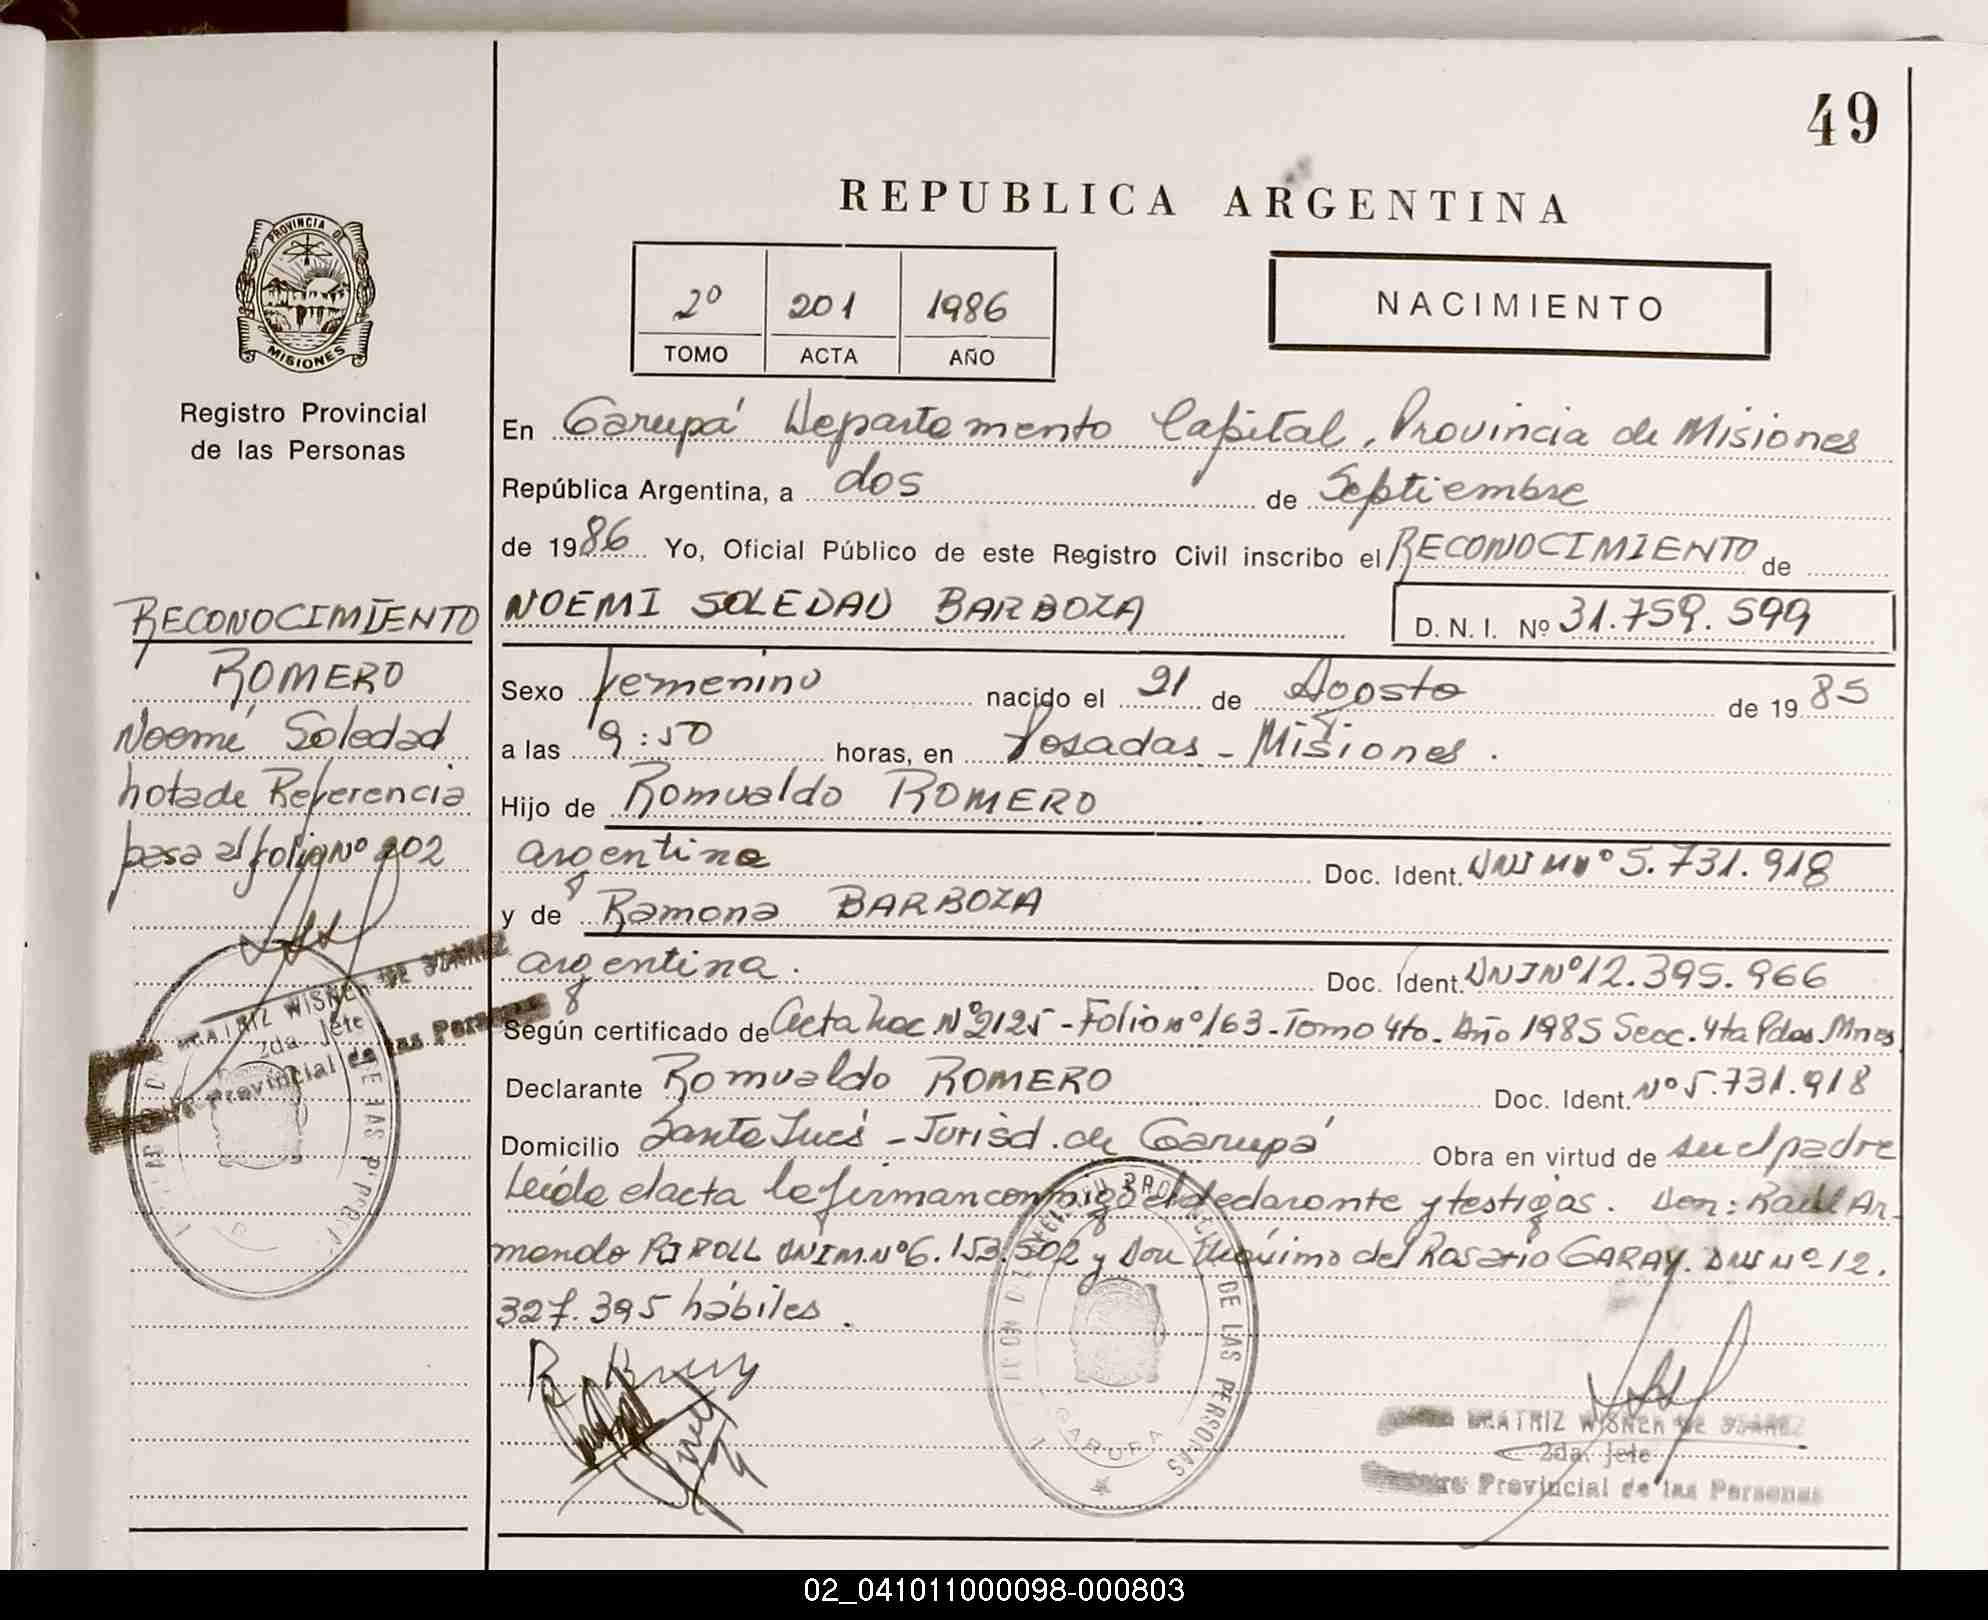 49
REPUBLICA ARGENTINA
PROVINCIA DE
MISIONES
Registro Provincial
de las Personas
2º 201 1986
TOMO ACTA AÑO
NACIMIENTO
En Garupá Departamento Capital, Provincia de Misiones
República Argentina, a dos de Septiembre
de 1986 Yo, Oficial Público de este Registro Civil inscribo el RECONOCIMIENTO de
NOEMI SOLEDAD BARBOZA D. N. I. Nº 31.759.599
Sexo femenino nacido el 21 de Agosto de 1985
a las 9:50 horas, en Posadas - Misiones.
Hijo de Romualdo ROMERO
argentino Doc. Ident. DNI Mnº 5.731.918
y de Ramona BARBOZA
argentina. Doc. Ident. DNI Nº 12.395.966
Según certificado de Acta Nac Nº 2125 - Folio nº 163 - Tomo 4to. Año 1985 Secc. 4ta Pdas. Mnes
Declarante Romualdo ROMERO Doc. Ident. Nº 5.731.918
Domicilio Santa Inés - Jurisd. de Garupá Obra en virtud de su el padre
Leída el acta la firman conmigo el declarante y testigos. Don: Raúl Ar-
mando PIROLL DNI M. Nº 6.153.502 y Don Máximo del Rosario GARAY. DNI Nº 12.
327.395 hábiles.
RECONOCIMIENTO
ROMERO
Noemí Soledad
nota de Referencia
pasa al folio Nº 202
BEATRIZ WISNER DE SUAREZ
2da. Jefe
Provincial de las Personas
DE LAS PERSONAS
GARUPA
BEATRIZ WISNER DE SUAREZ
2da. Jefe
Registro Provincial de las Personas
02_041011000098-000803